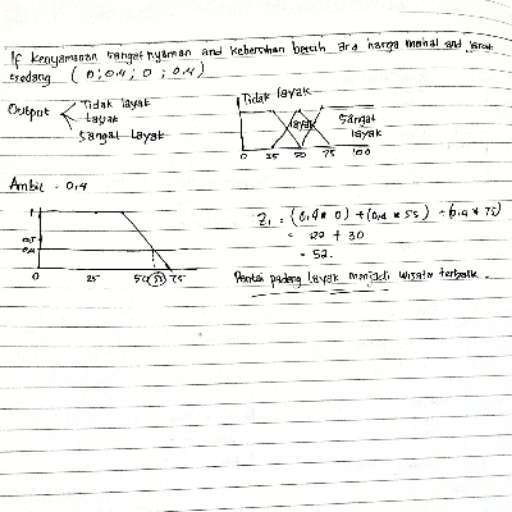 If kenyamanan sangat nyaman and kebersihan bersih and harga mahal and jarak
sedang (0; 0,4; 0; 0,4)
Output
Tidak layak
Layak
Sangat Layak
Tidak layak
layak
Sangat
layak
0 25 50 75 100
Ambil 0,4
1
0,5
0,4
0 25 50 55 75
Z₁ = (0,4 * 0) + (0,4 * 55) + (0,4 * 75)
= 22 + 30
= 52.
Pantai padang layak menjadi wisata terbaik.